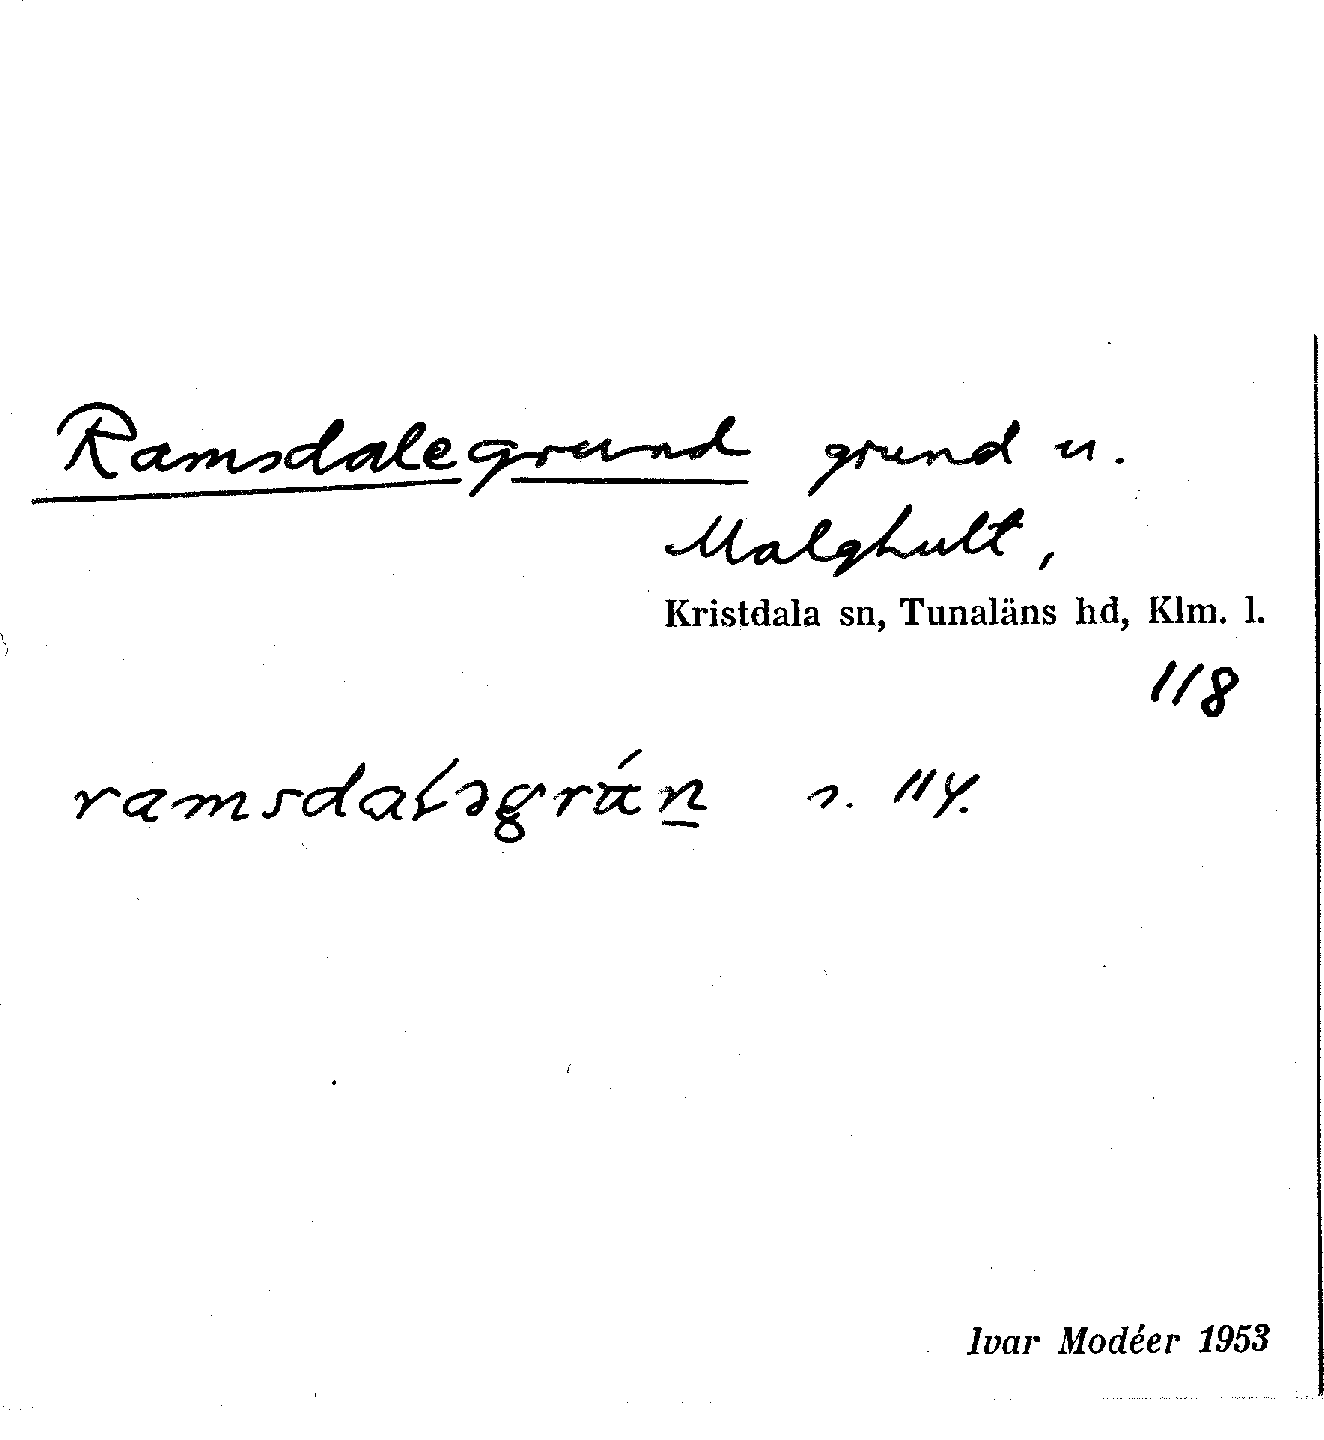 Ramsdalegrund grund u.
Malghult,
Kristdala sn, Tunaläns hd, Klm. l.
118
s. 114.
Ivar Modéer 1953